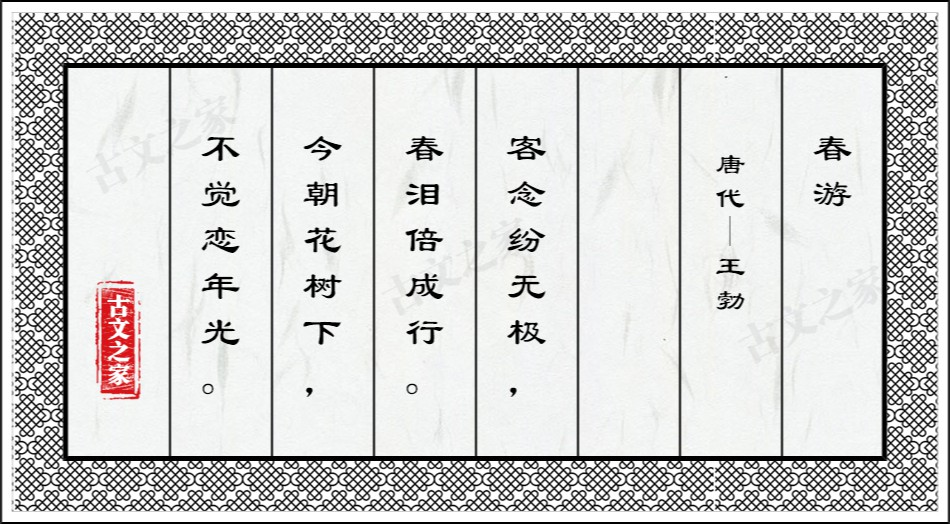 春游
唐代—王勃
客念纷无极，
春泪倍成行。
今朝花树下，
不觉恋年光。
古文之家
古文之家
古文之家
古文之家